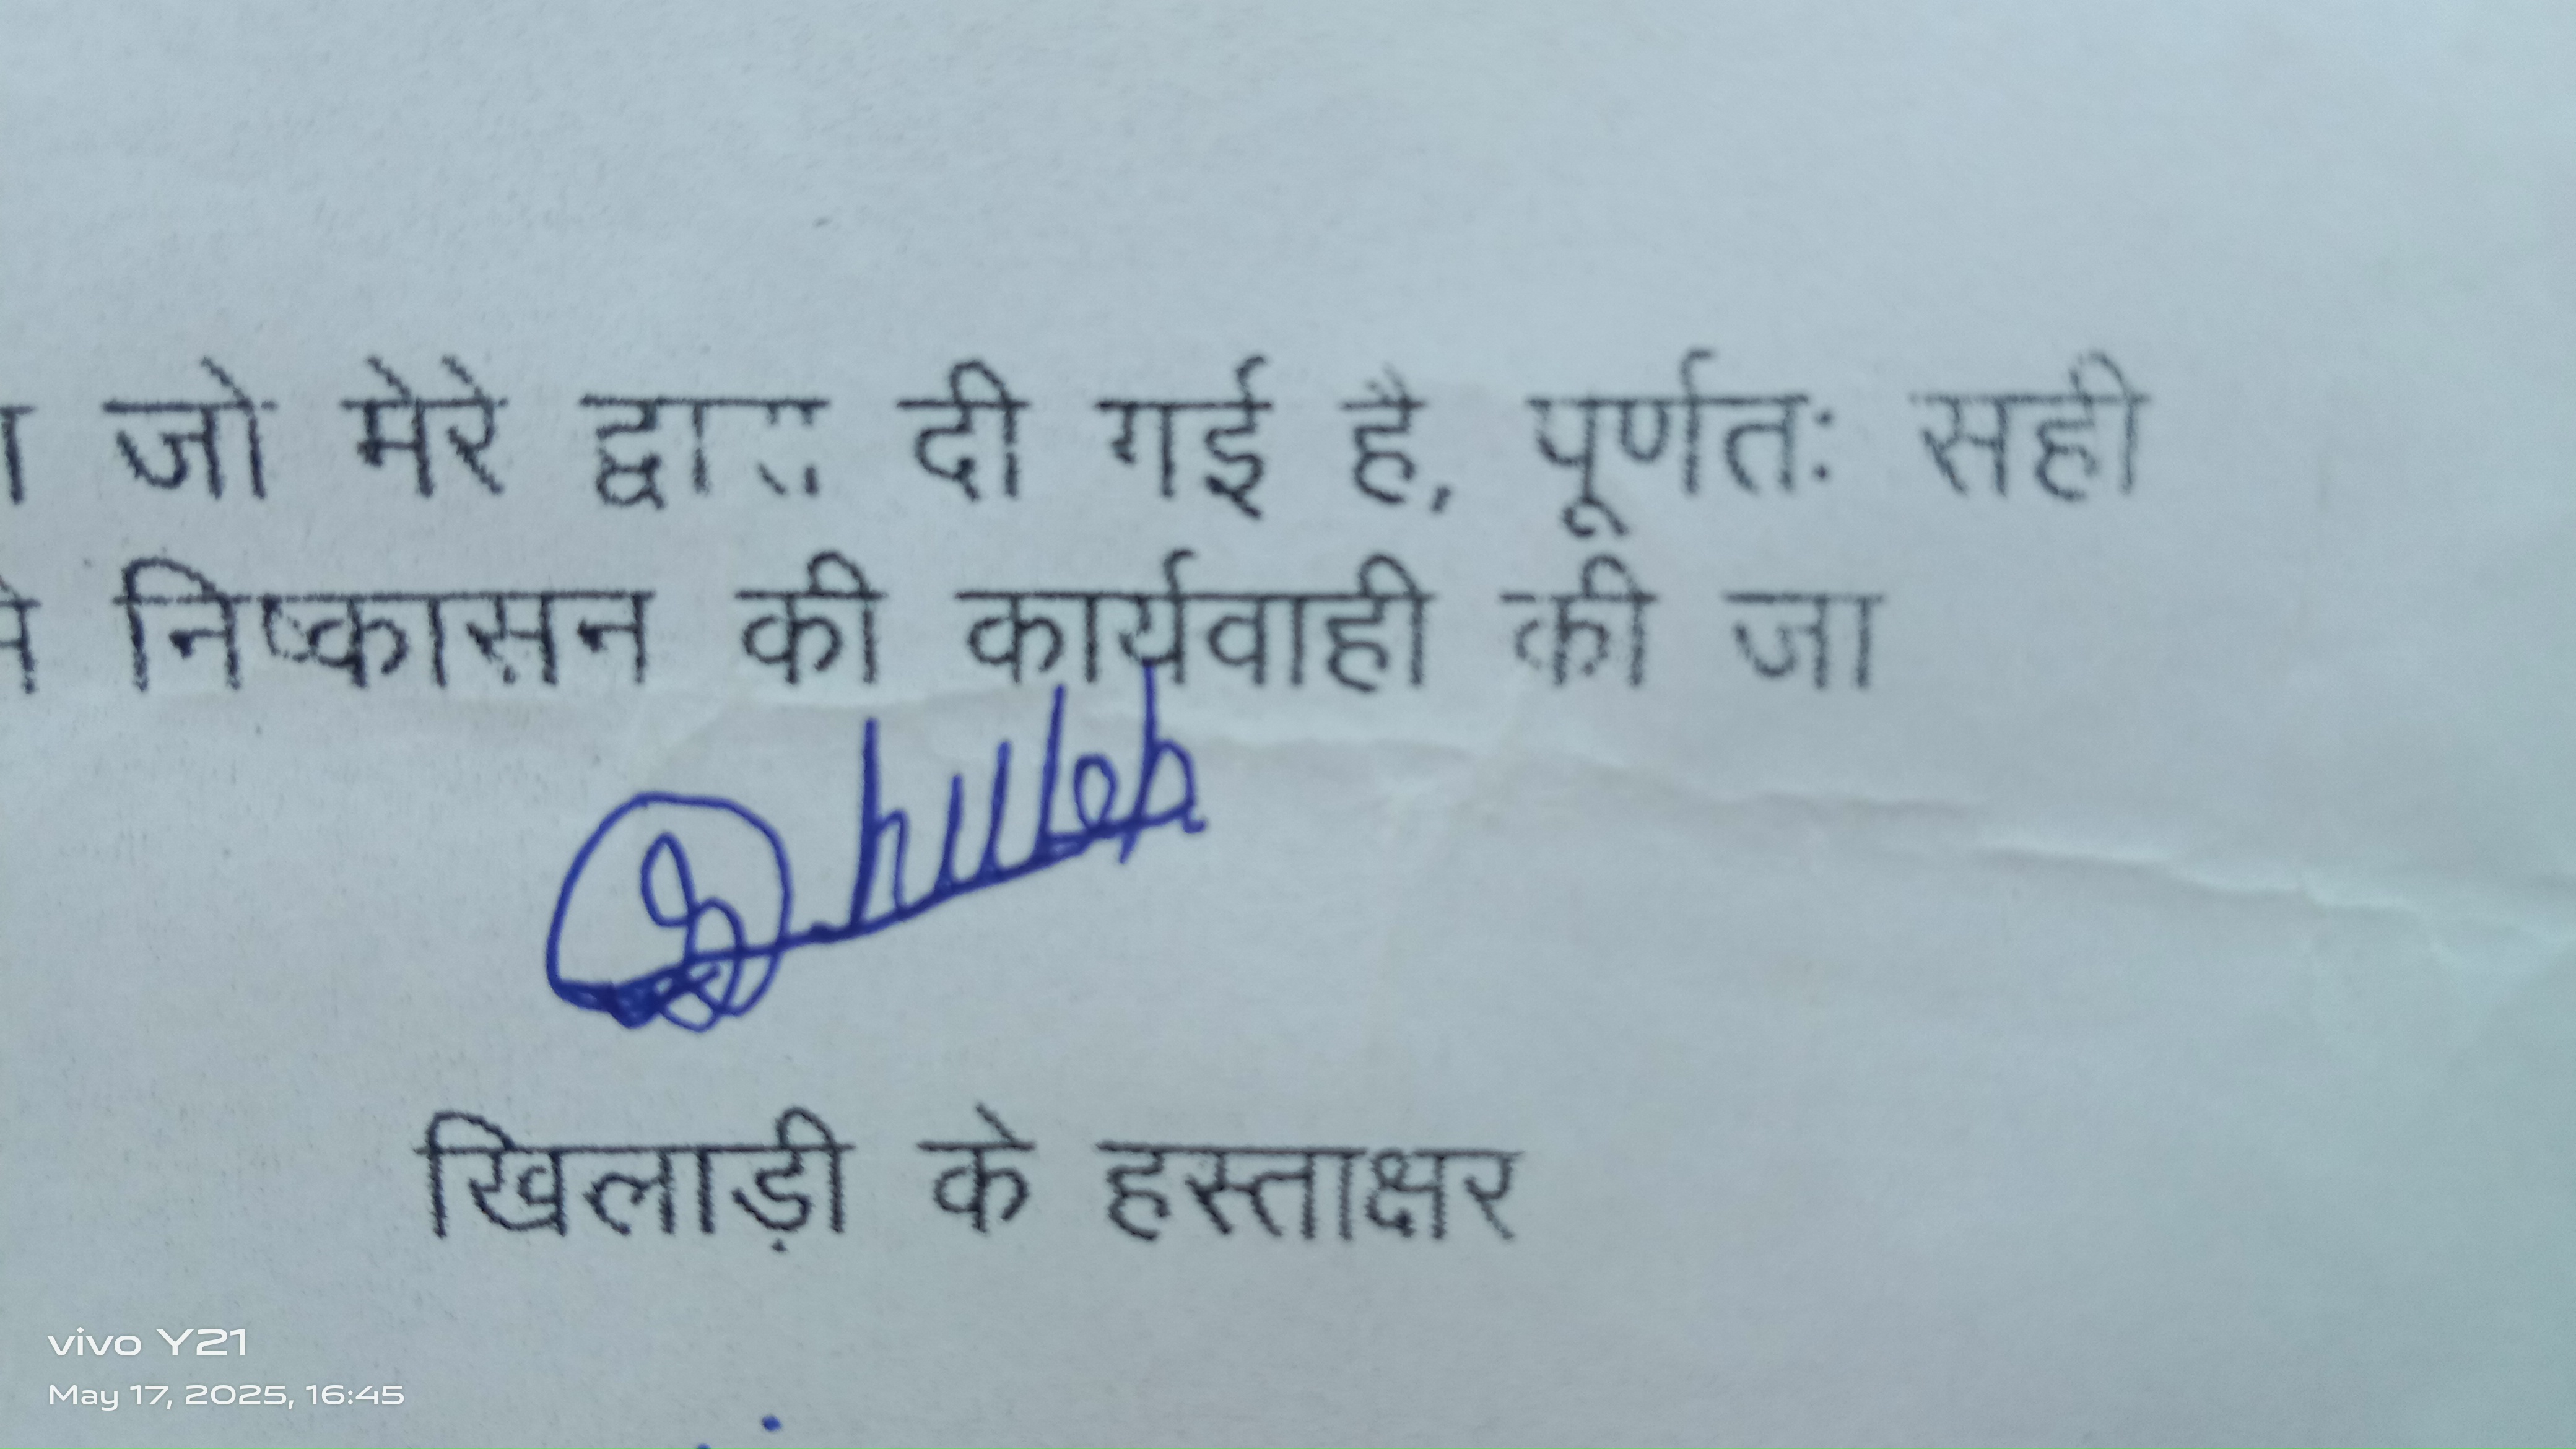 जो मेरे द्वारा दी गई है, पूर्णतः सही
निष्कासन की कार्यवाही की जा
खिलाड़ी के हस्ताक्षर
vivo Y21
May 17, 2025, 16:45